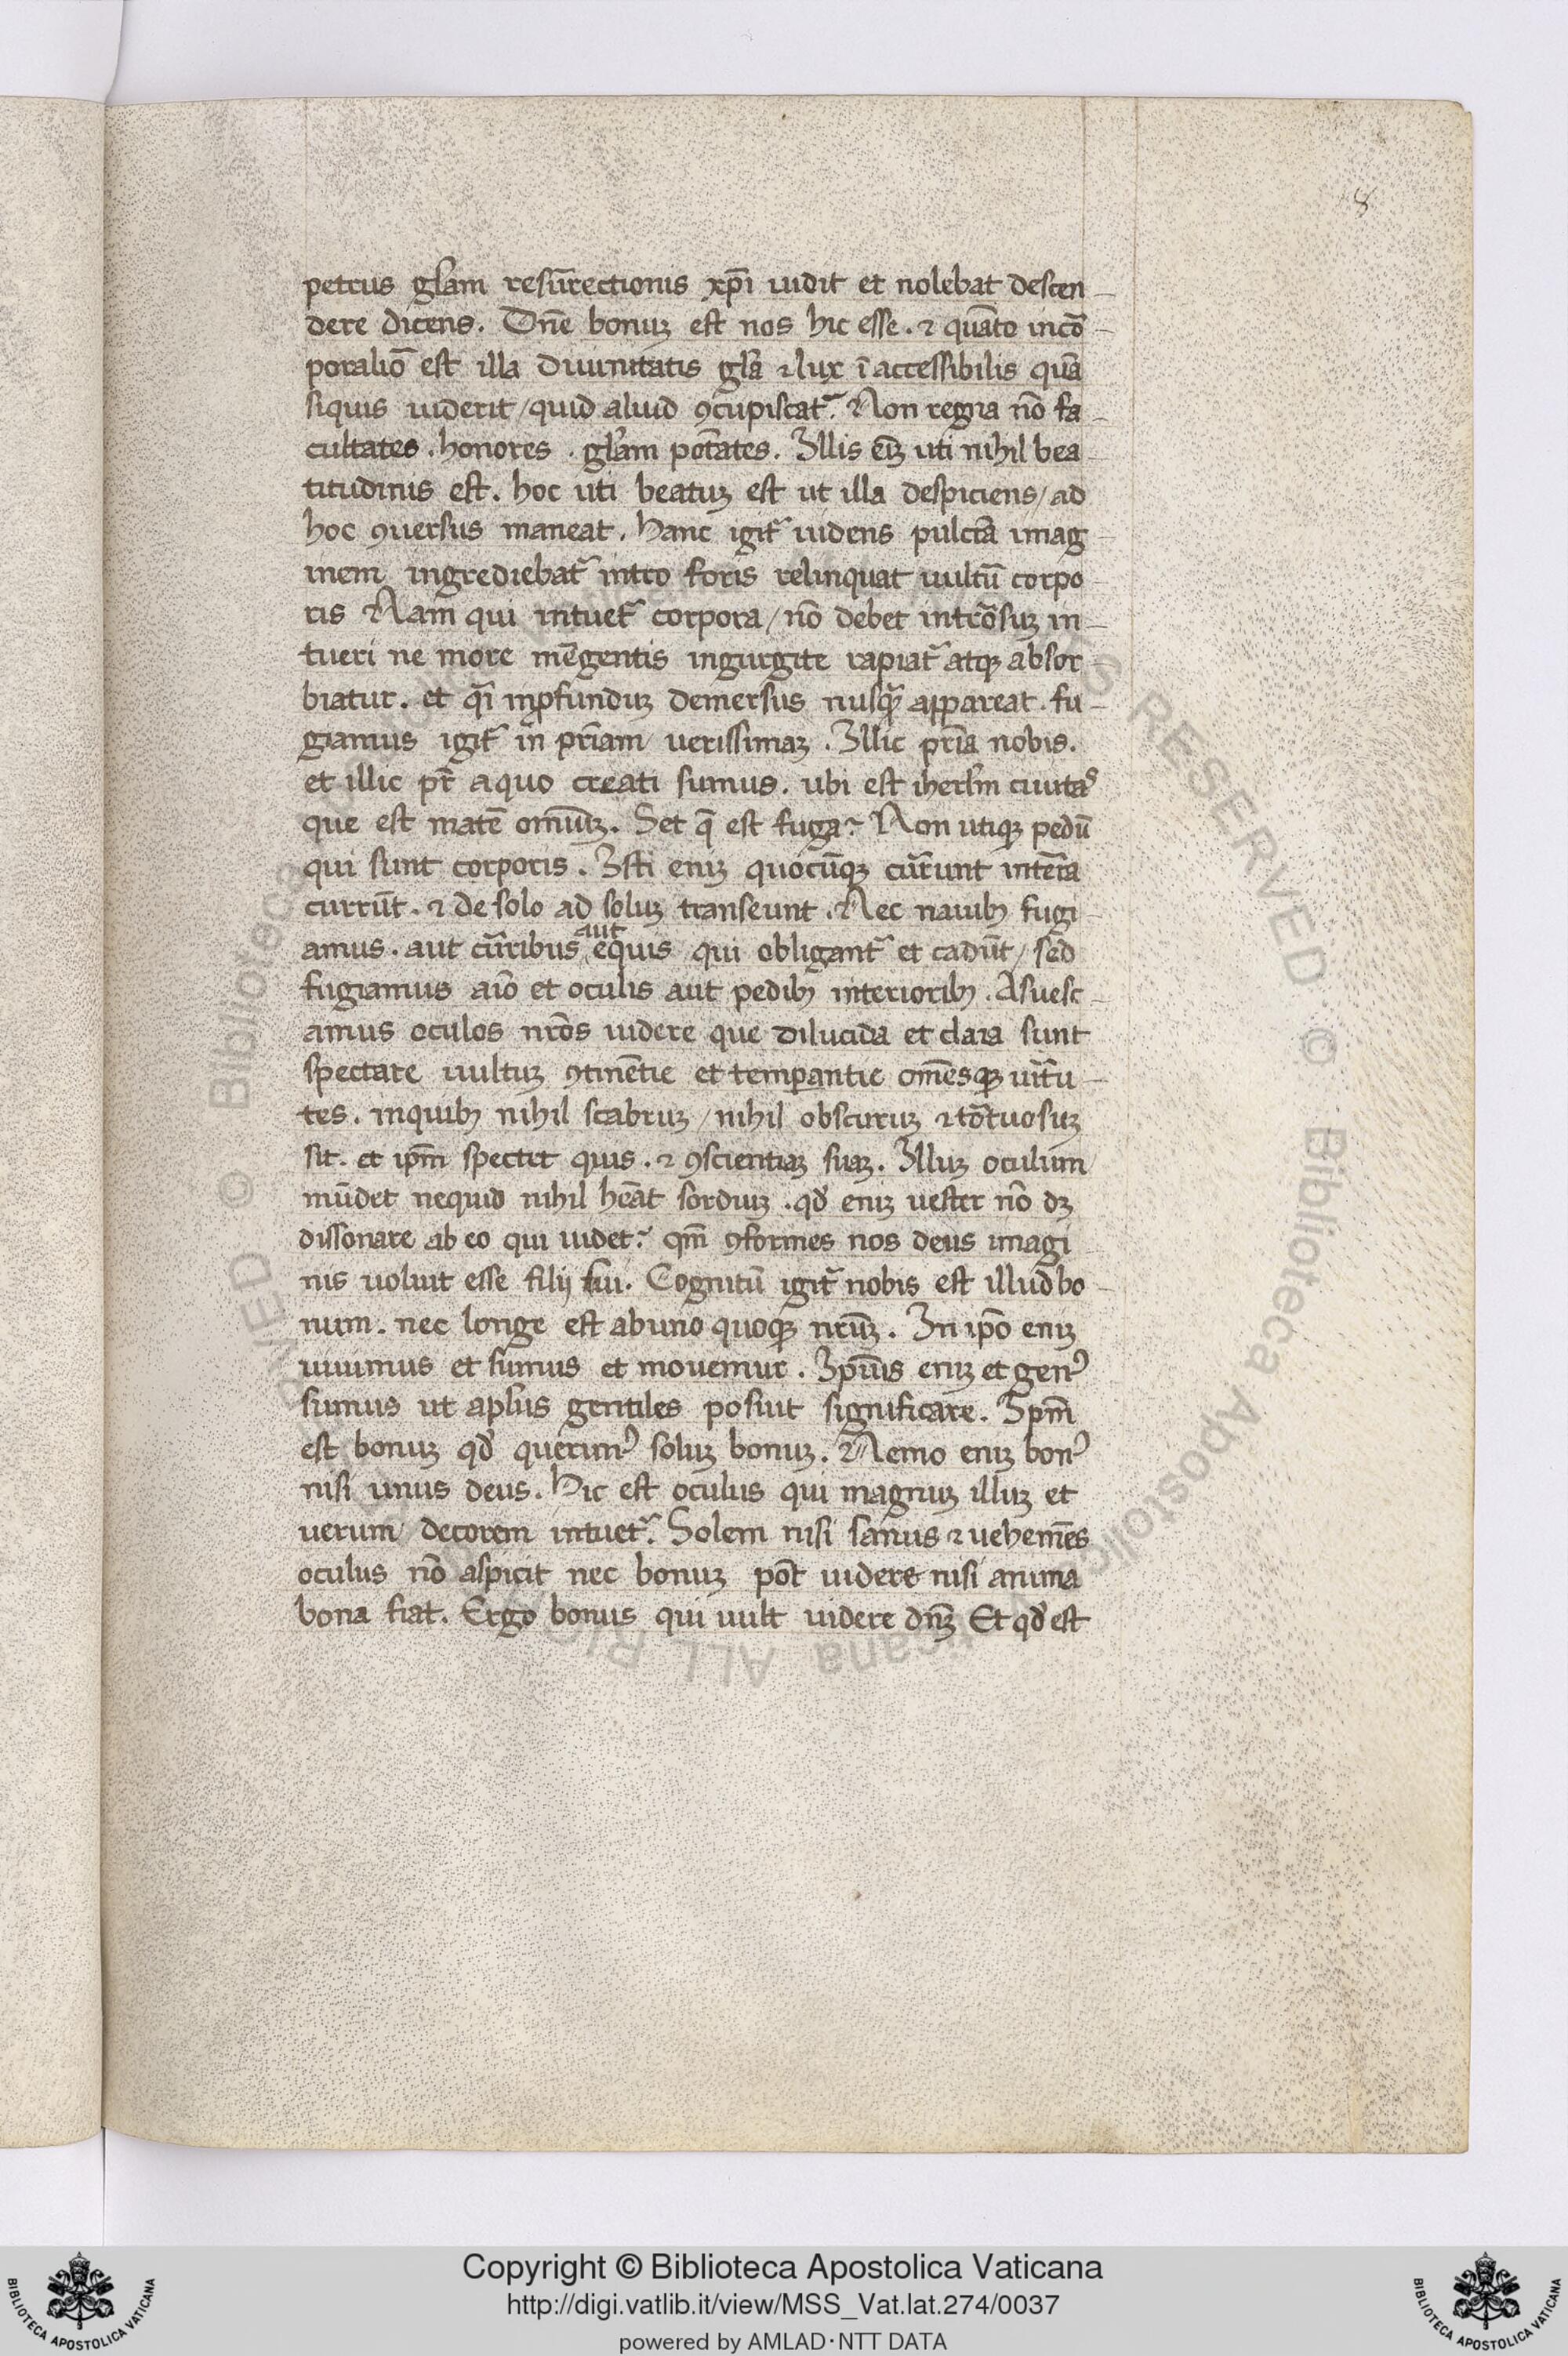 8
petrus gl̄am resūrectionis xp̄i uidit et nolebat descen
dere dicens. Dn̄e bonuꝫ est nos hic esse. ⁊ quāto incō
poraliō est illa diuinitatis gl̄a ⁊ lux īaccessibilis quā
siquis uiderit / quid aliud ꝯcupiscat᷑. Non regia nō fa
cultates . honores . gl̄am potātes. Illis eīꝫ uti nihil bea
titudinis est. hoc uti beatuꝫ est ut illa despiciens / ad
hoc ꝯuersus maneat. Hanc igit᷑ uidens pulcrā imag
inem ingrediebat᷑ intro foris relinquat uultū corpo
ris Nam qui intuet᷑ corpora / nō debet introrsuꝫ in
tueri ne more mēgentis ingurgite rapiat᷑ atqꝫ absor
biatur. et q̄i inꝓfunduꝫ demersus nusq̄ appareat. fu
giamus igit᷑ in pr̄iam uerissimaꝫ . Illic pr̄ia nobis.
et illic pr̄ aquo creati sumus. ubi est iherl̄m ciuitas
que est matē omniūꝫ. Set q̄ est fuga? Non utiqꝫ pedū
qui sunt corporis. Isti eniꝫ quocūqꝫ cūrunt intēra
currūt. ⁊ de solo ad soluꝫ transeunt. Nec nauibꝫ fugi
amus. aut cūribus aut equis qui obligant᷑ et cadūt / sed
fugiamus aīo et oculis aut pedibꝫ interioribꝫ. Asuesc
amus oculos nrōs uidere que dilucida et clara sunt
spectare uultuꝫ ꝯtinētie et temperantie omēsqꝫ uirtu
tes. inquibꝫ nihil scabruꝫ / nihil obscuruꝫ ⁊ tōtuosuꝫ
sit. et ip̄m spectet quis. ⁊ ꝯscientiaꝫ suaꝫ. Illuꝫ oculum
mūdet nequid nihil heāt sorduiꝫ . qd̄ eniꝫ uester nō dꝫ
dissonare ab eo qui uidet᷑. qm̄ ꝯformes nos deus imagi
nis uoluit esse filij sui. Cognitū igit᷑ nobis est illud bo
num. nec longe est abuno quoqꝫ nrūꝫ. In ip̄o eniꝫ
uiuimus et sumus et mouemur. Ip̄ius eniꝫ et genꝰ
sumus ut apl̄us gentiles posuit significare. Ip̄m
est bonuꝫ qd̄ querimꝰ soluꝫ bonuꝫ. Nemo eniꝫ bonꝰ
nisi unus deus. Hic est oculus qui magnuꝫ illuꝫ et
uerum decorem intuet᷑. Solem nisi sanus ⁊ uehemēs
oculus nō aspicit nec bonuꝫ pōt uidere nisi anima
bona fiat. Ergo bonus qui uult uidere dn̄ꝫ Et qd̄ est
Copyright © Biblioteca Apostolica Vaticana
http://digi.vatlib.it/view/MSS_Vat.lat.274/0037
powered by AMLAD·NTT DATA